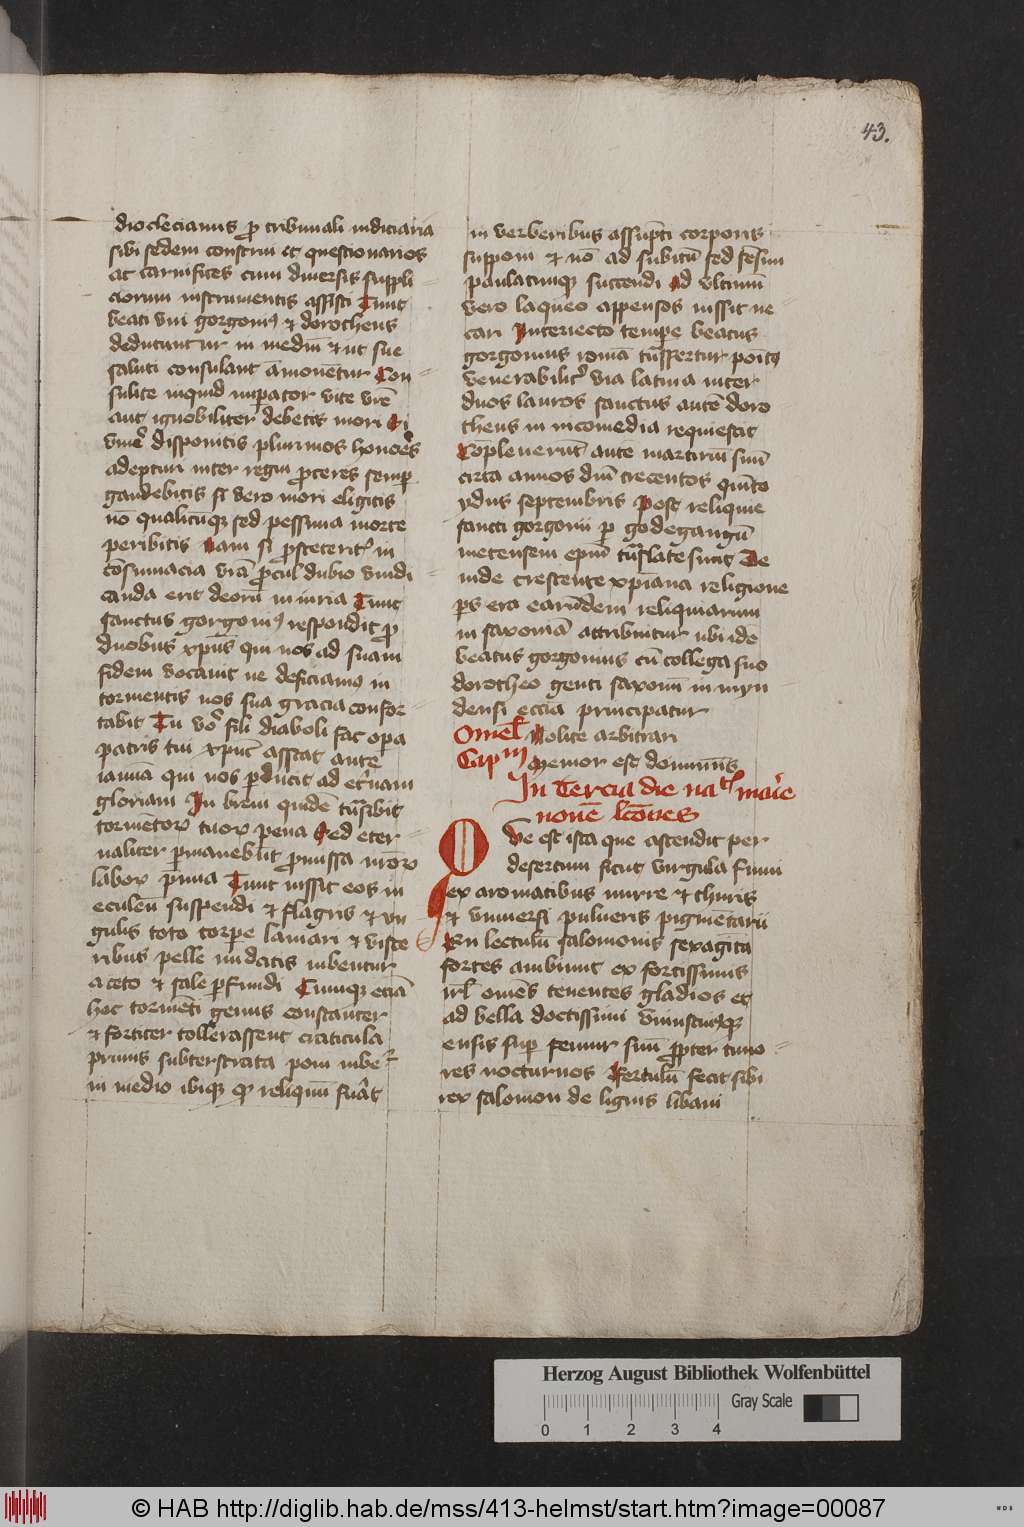 43.
dioclecianus ꝓ tribunali iudiciaria
sibi sedem construi et questionarios
ac carnifices cum diuersis suppli
ciorum instrumentis assisti Tunc
beati viri gorgoniꝰ ⁊ dorotheus
deducuntur in mediū ⁊ ut sue
saluti consulant āmonētur Con
sulite inquid imꝑator vite vr̄e
aut ignobiliter debetis mori Si
disponitis plurimos honores
adepturi inter regni ꝓceres semꝑ
gaudebitis si vero mori eligitis
nō qualicūqꝫ sed pessima morte
peribitis Nam si ꝑsteterit in
cōtumacia vr̄a ꝓcul dubio vindi
canda erit deorū iniuria Tunc
sanctus gorgoniꝰ respondit ꝓ
duobus xp̄us qui nos ad suam
fidem vocauit ne deficiamꝰ in
tormentis nos sua gracia confor
tabit Tu vo fili diaboli fac opera
patris tui xp̄us asstat ante
ianuā qui nos ꝑducit ad et̄nam
gloriam In breui quide tr̄nsibit
tormētoꝝ tuoꝝ pena Sed eter
naliter ꝑmanebūt ꝓmissa nr̄oꝝ
laboꝝ p̄mia Tunc iussit eos in
eculeū suspendi ⁊ flagris ⁊ vn
gulis toto corpe laniari ⁊ visce
ribus pelle nudatis iubentur
aceto ⁊ sale ꝑfundi Cumqꝫ eciā
hoc tormēti genus constanter
⁊ fortiter tollerassent craticula
prunis subterstrata poni iubet
in medio ibiqꝫ qꝫ reliquū fuāt
in verberibus assupti corporis
supponi ⁊ nō ad subitū sed sēsim
paulatimqꝫ succendi Ad vltimū
vero laqueo appensos iussit ne
cari Interiecto tempe beatus
gorgonius romā tn̄ssertur
venerabilitꝰ via latina inter
duos lauros sanctus autē doro
theus in nicomedia requiescit
Cōpleuerūt aute martiriū suū
circa annos dm̄ trecentos quīto
ydus septembris Post reliquie
sancti gorgonii ꝑ godegangū
metensem epm̄ tn̄slate sunt De
inde crescente xp̄iana religione
ꝑs era earūdem reliquiarum
in saxoniā attribuitur ubi idē
beatus gorgonius cū collega suo
dorotheo genti saxonū in myn
densi eccīa principatur
Omel̄ Nolite arbitrari
Capᵐ Memor est dominus
In Tercia die nat̄ marie
none lcōnes
Que est ista que ascendit per
desertum sicut virgula fumi
ex aromatibus mirre ⁊ thuris
⁊ vniuersi pulueris pigmētarii
En lectulū salomonis sexaginta
fortes ambiunt ex fortissimis
isrl̄ omēs tenentes gladios et
ad bella doctissimi Vniuscuiꝰqꝫ
ensis suꝑ femur suū ꝓpter timo
res nocturnos Ferculū fecit sibi
rex salomon de lignis libani
Herzog August Bibliothek Wolfenbüttel
Gray Scale
0 1 2 3 4
© HAB http://diglib.hab.de/mss/413-helmst/start.htm?image=00087
WDB